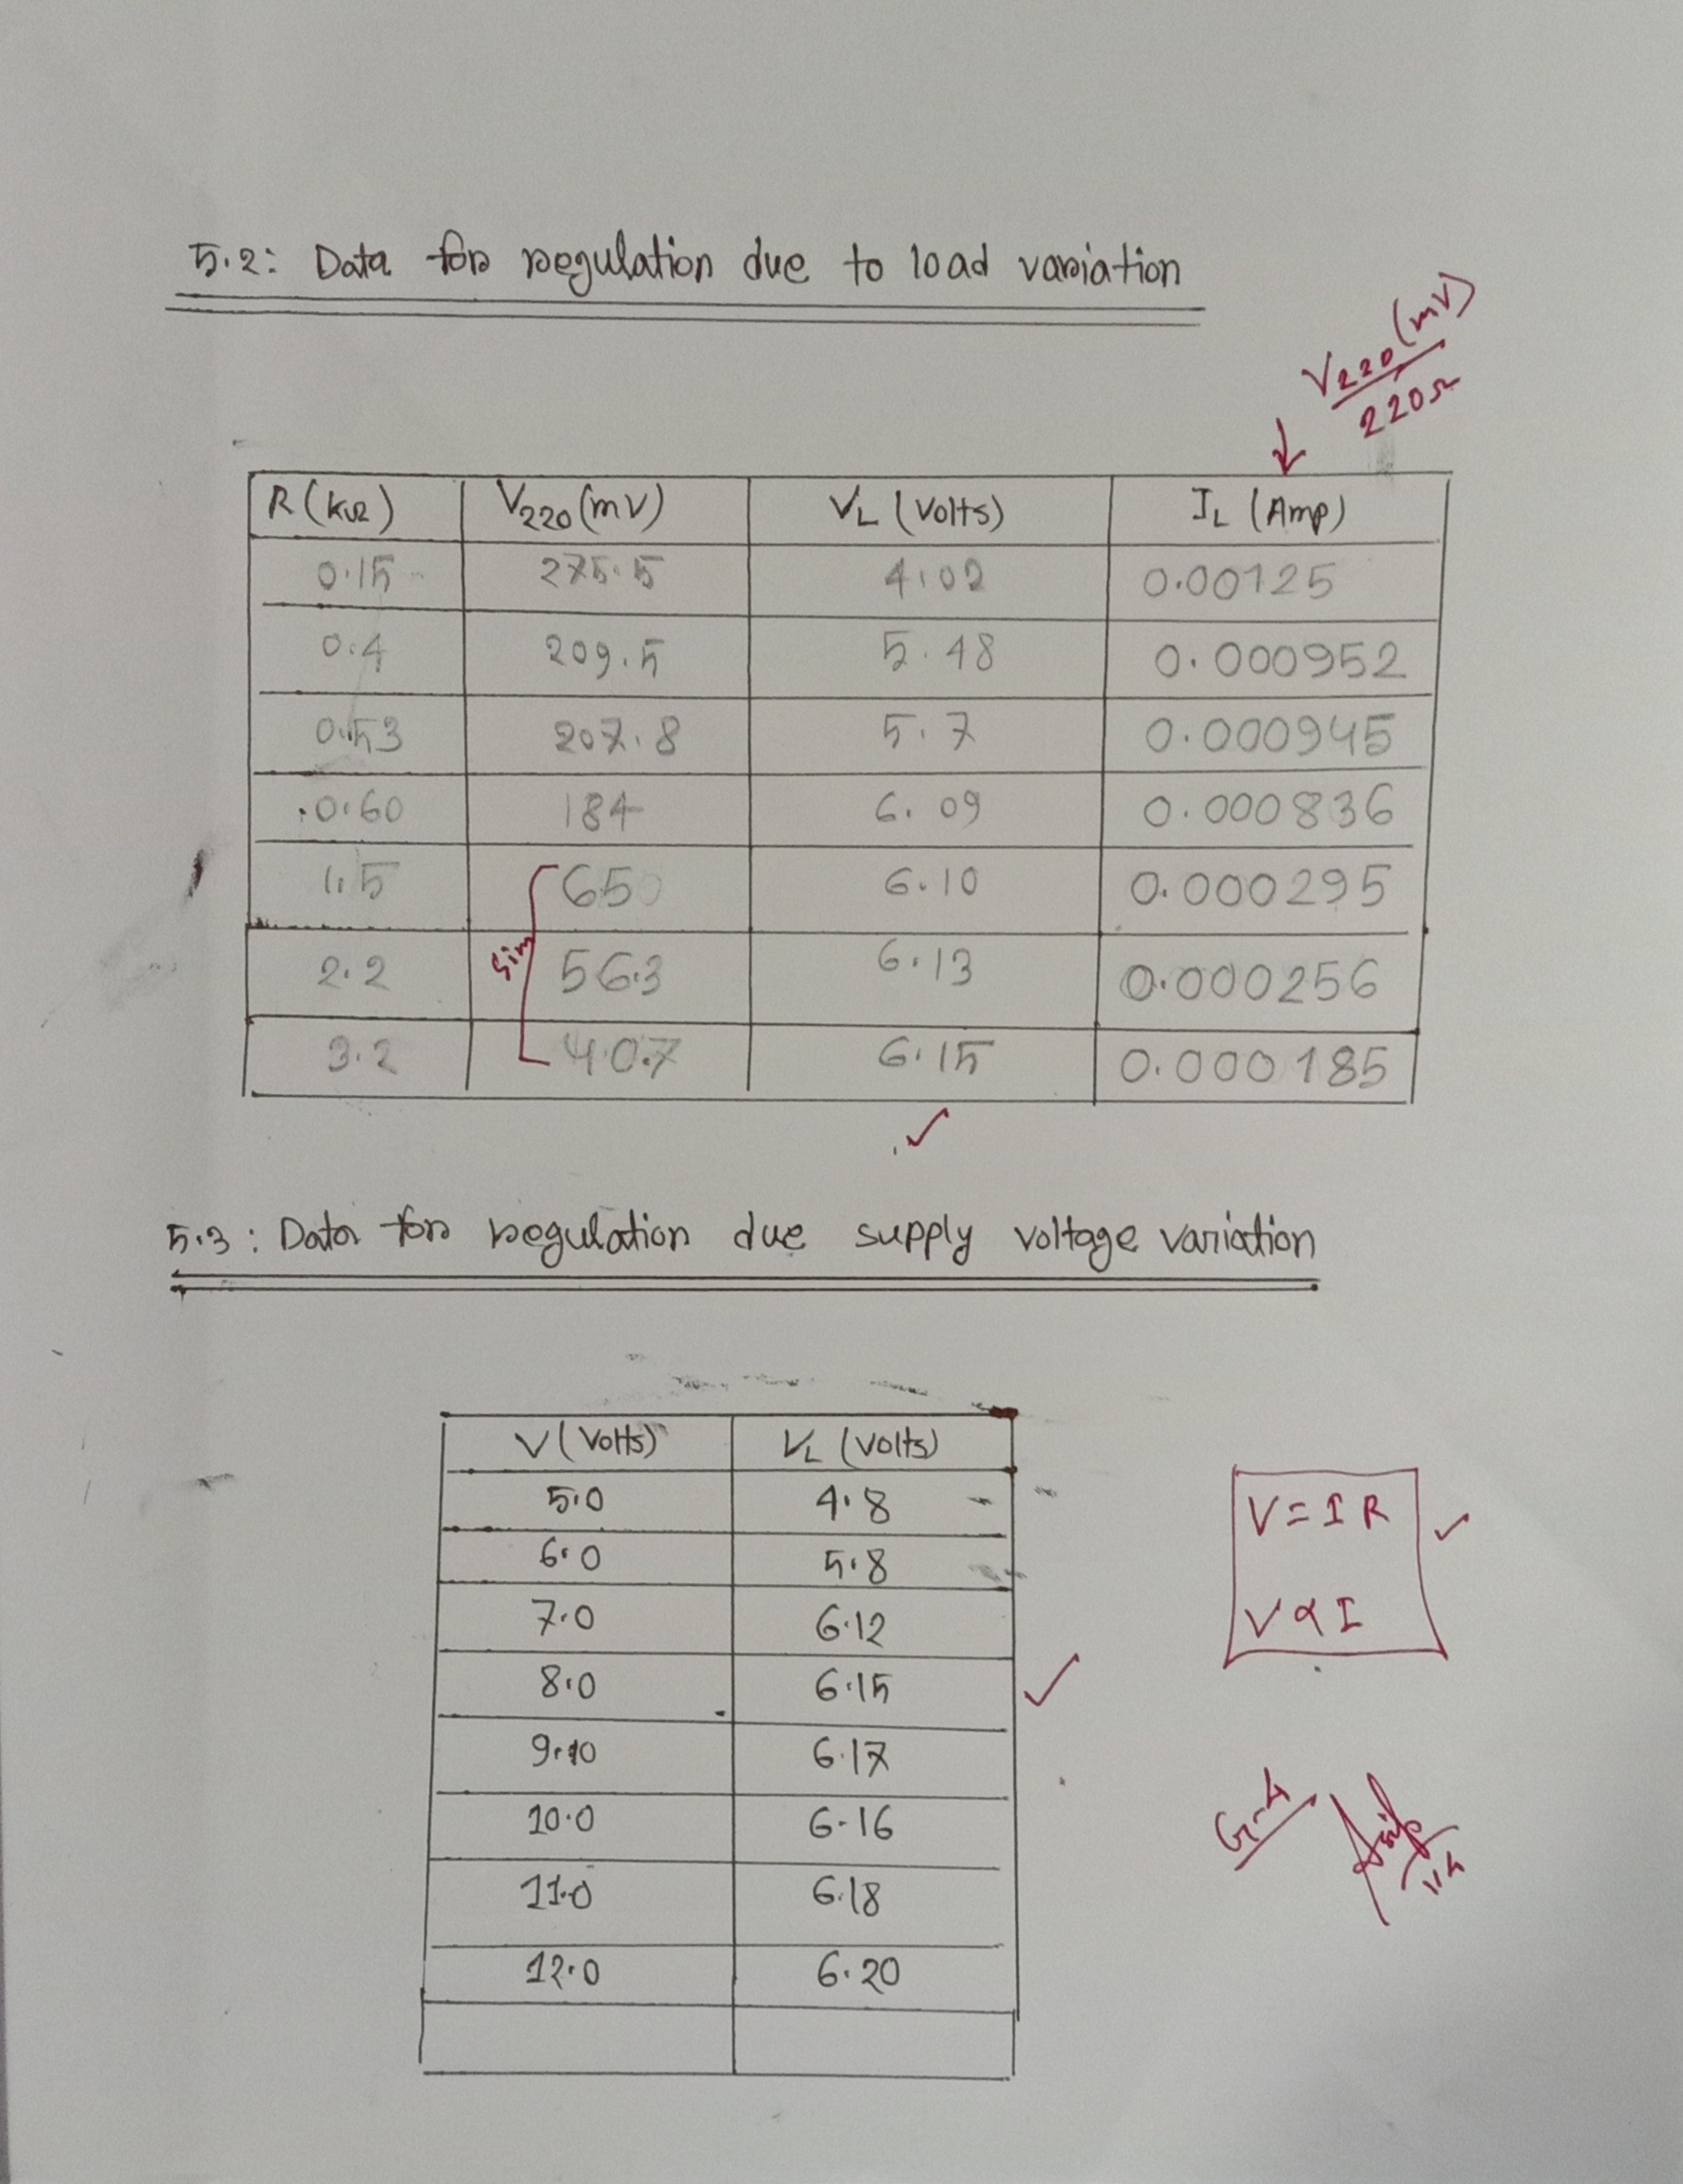 5.2: Data for regulation due to load variation
V220 (mV)
220Ω
↓
R (kΩ) V220 (mV) VL (Volts) IL (Amp)
0.15 275.5 4.02 0.00125
0.4 209.5 5.48 0.000952
0.53 207.8 5.7 0.000945
0.60 184 6.09 0.000836
1.5 650 6.10 0.000295
Sim
2.2 56.3 6.13 0.000256
3.2 40.7 6.15 0.000185
✓
5.3: Data for regulation due supply voltage variation
V (Volts) VL (Volts)
5.0 4.8
6.0 5.8
7.0 6.12
8.0 6.15
9.0 6.17
10.0 6.16
11.0 6.18
12.0 6.20
V = I R
V ∝ I
✓
✓
G-4